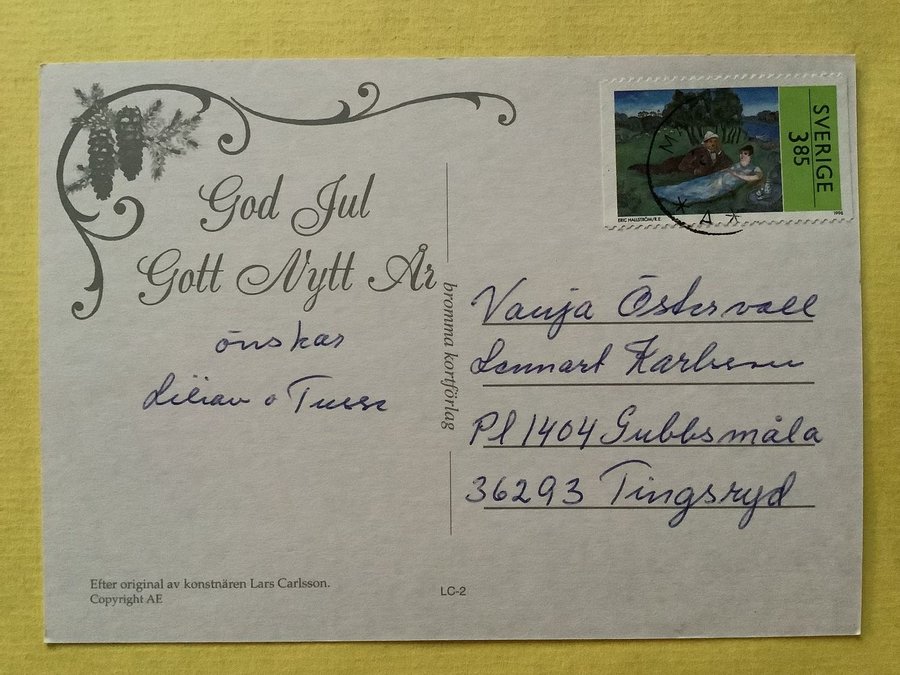 God Jul
Gott Nytt År
önskar
Lilian o Tusse
bromma kortförlag
SVERIGE
385
ERIC HALLSTRÖM/R.E
1996
Vanja Östervall
Lennart Karlsson
Pl 1404 Gubbsmåla
36293 Tingsryd
Efter original av konstnären Lars Carlsson.
Copyright AE
LC-2